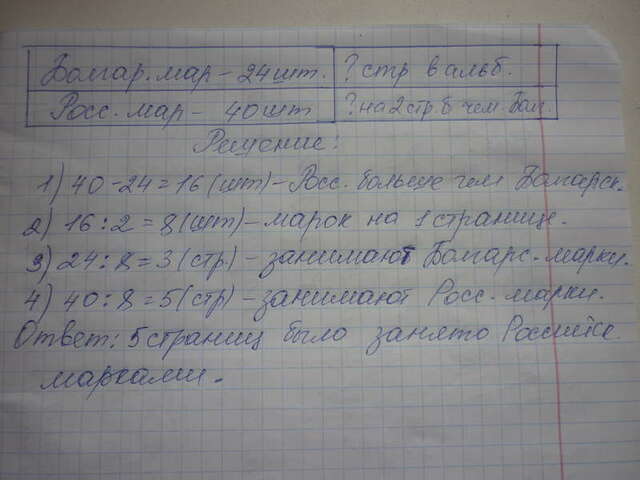 Болгар. мар - 24 шт. ? стр в альб.
Росс. мар - 40 шт ? на 2 стр. б чем Бол.
Решение:
1) 40 - 24 = 16 (шт) - Росс. больше чем Болгарск.
2) 16 : 2 = 8 (шт) - марок на 1 странице.
3) 24 : 8 = 3 (стр) - занимают Болгарс. марки.
4) 40 : 8 = 5 (стр) - занимают Росс. марки.
Ответ: 5 страниц было занято Российск.
марками.